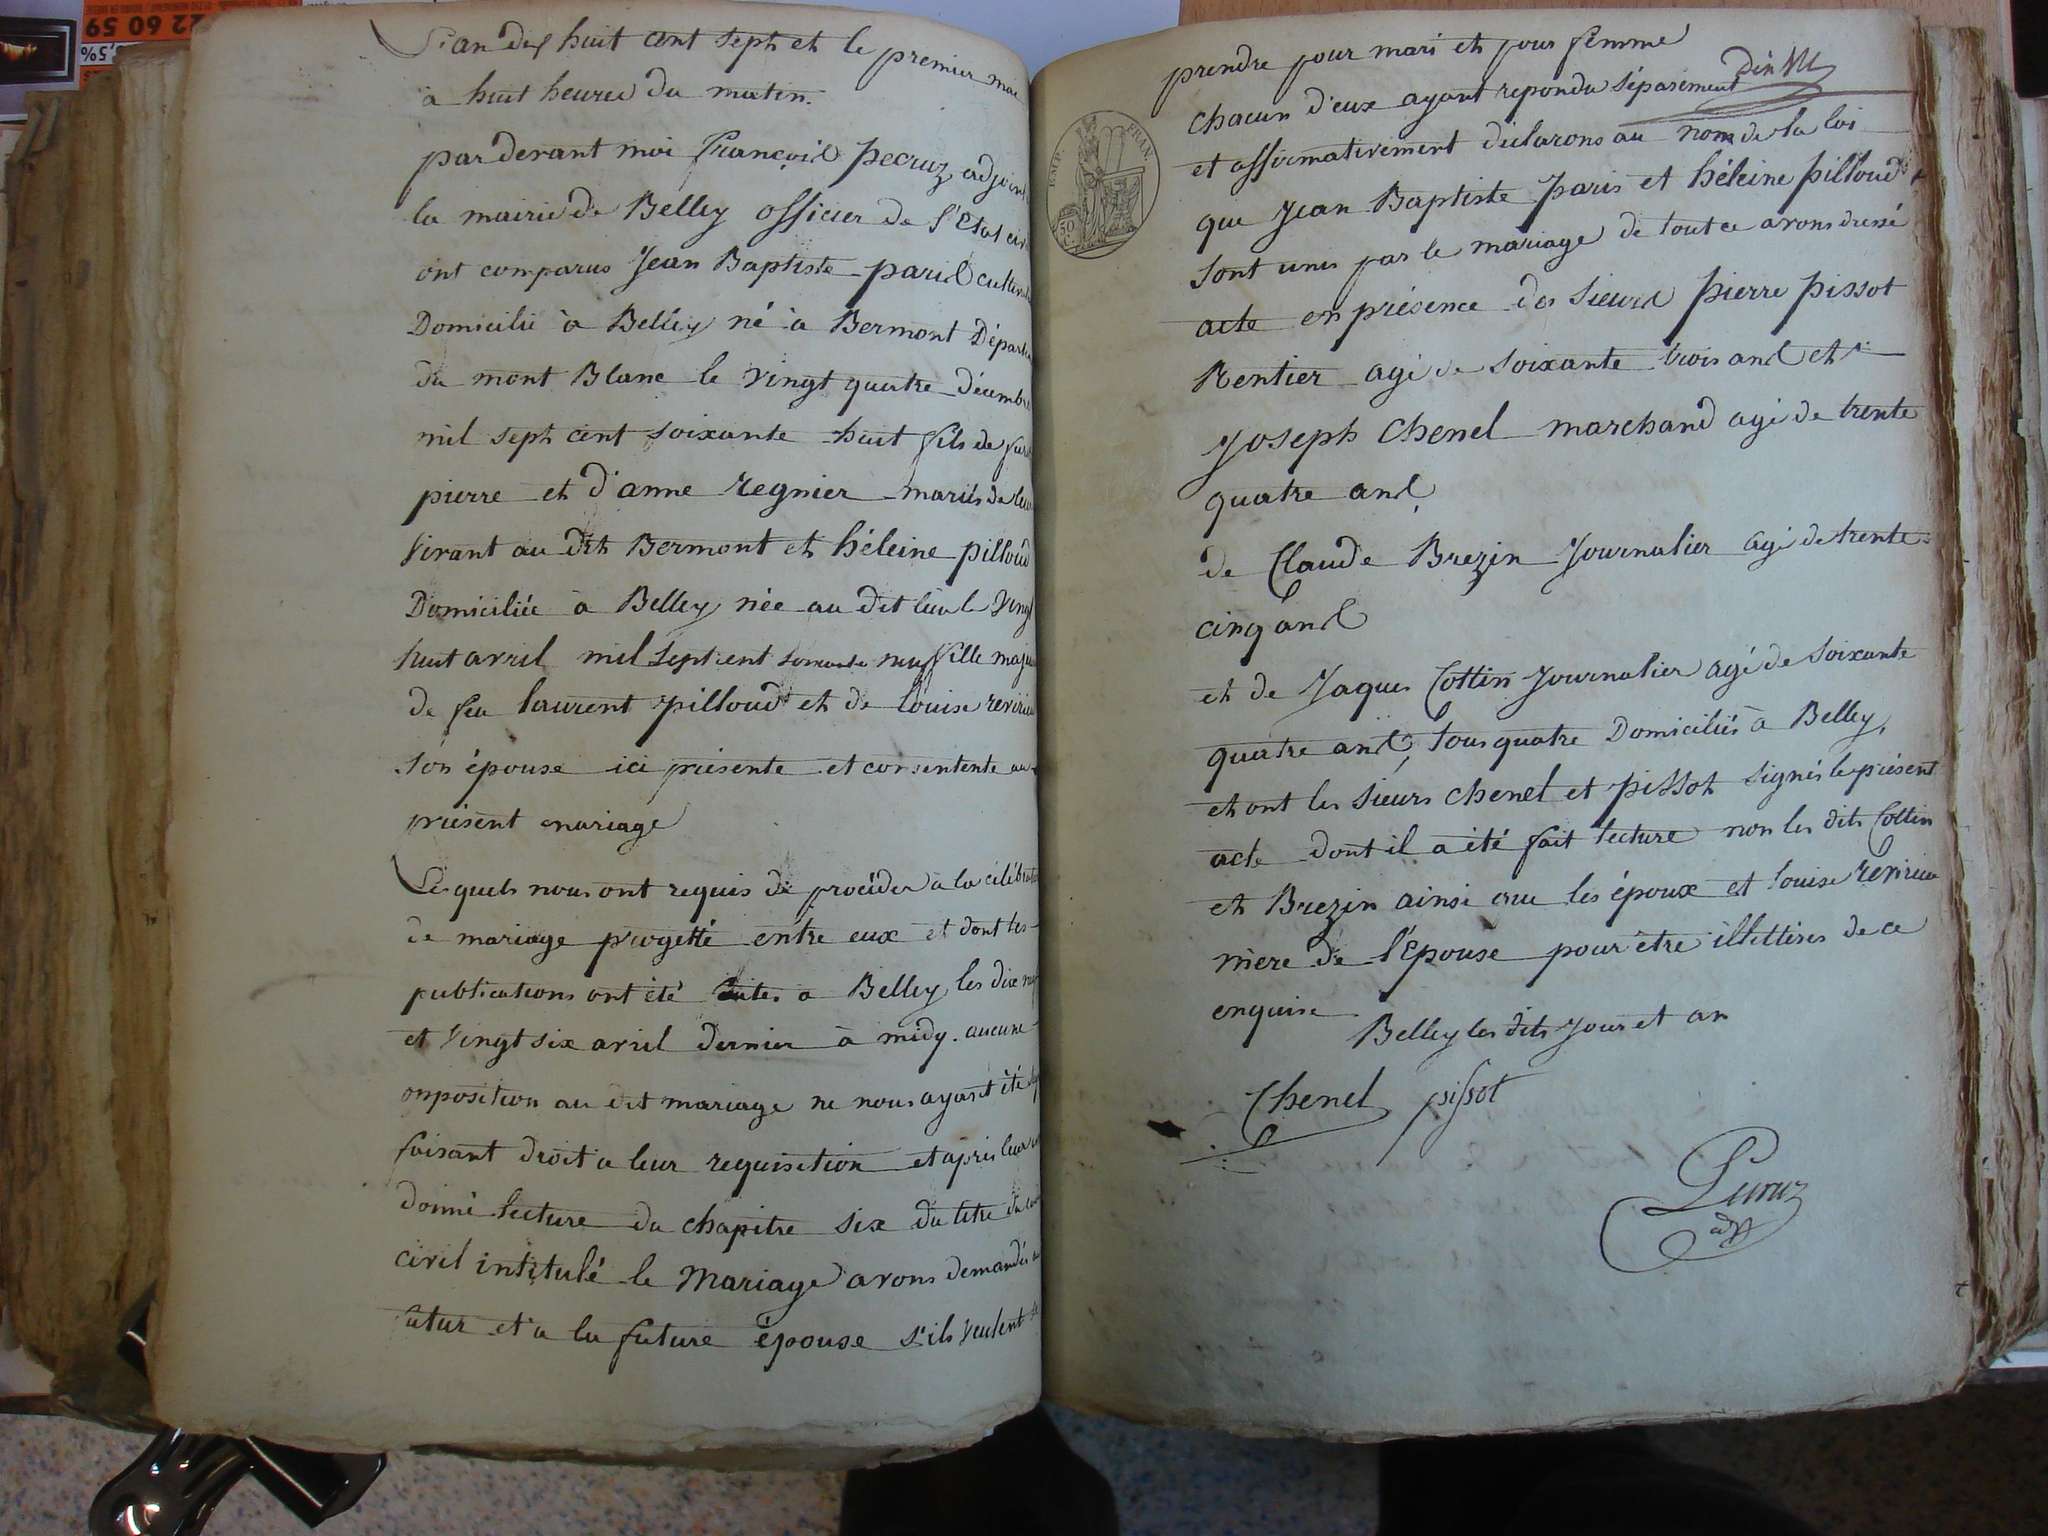 22 60 59
,5%
L'an dix huit cent sept et le premier mai
à huit heures du matin.
par devant moi françois pecruz adjoint
la mairie de Belley officier de l'Etat civ
ont comparus Jean Baptiste paris cultiv
Domicilié à Belley né à Bermont Départ
du mont Blanc le vingt quatre décembre
mil sept cent soixante huit fils de feu
pierre et d'anne regnier mariés de leur
vivant au dit Bermont et héleine pilloud
Domiciliée a Belley née au dit lieu le vingt
huit avril mil sept cent soixante neuf fille maj
de feu laurent pilloud et de louise
son épouse ici présente et consentente au
présent mariage
Lesquels nous ont requis de procéder a la célébrat
de mariage progetté entre eux et dont les
publications ont été faites a Belley les dix neuf
et vingt six avril dernier à midy. aucune
opposition au dit mariage ne nous ayant été
faisant droit a leur requisition et apris leur
donné lecture du chapitre six du titre du
civil intitulé le Mariage avons demandés au
futur et a la future épouse s'ils veulent se
prendre pour mari et pour femme
chacun d'eux ayant repondu séparement
et affirmativement déclarons au nom de la loi
EMP. FRAN.
50 C.
que Jean Baptiste paris et héleine pilloud
sont unis par le mariage de tout ce avons dressé
acte en présence des sieurs pierre pissot
Rentier agé de soixante trois ans et
Joseph Chenel marchand agé de trente
quatre ans,
de Claude Brezin Journalier agé de trente
cinq ans
et de Jaques Cottin Journalier agé de soixante
quatre ans, tous quatre Domiciliés à Belley,
et ont les sieurs chenel et pissot signés le présent
acte dont il a été fait lecture non les dits Cottin
et Brezin ainsi que les époux et louise
mere de l'épouse pour être illettirés de ce
enquise
Belley les dits Jour et an
Chenel pissot
Pecruz
adjt